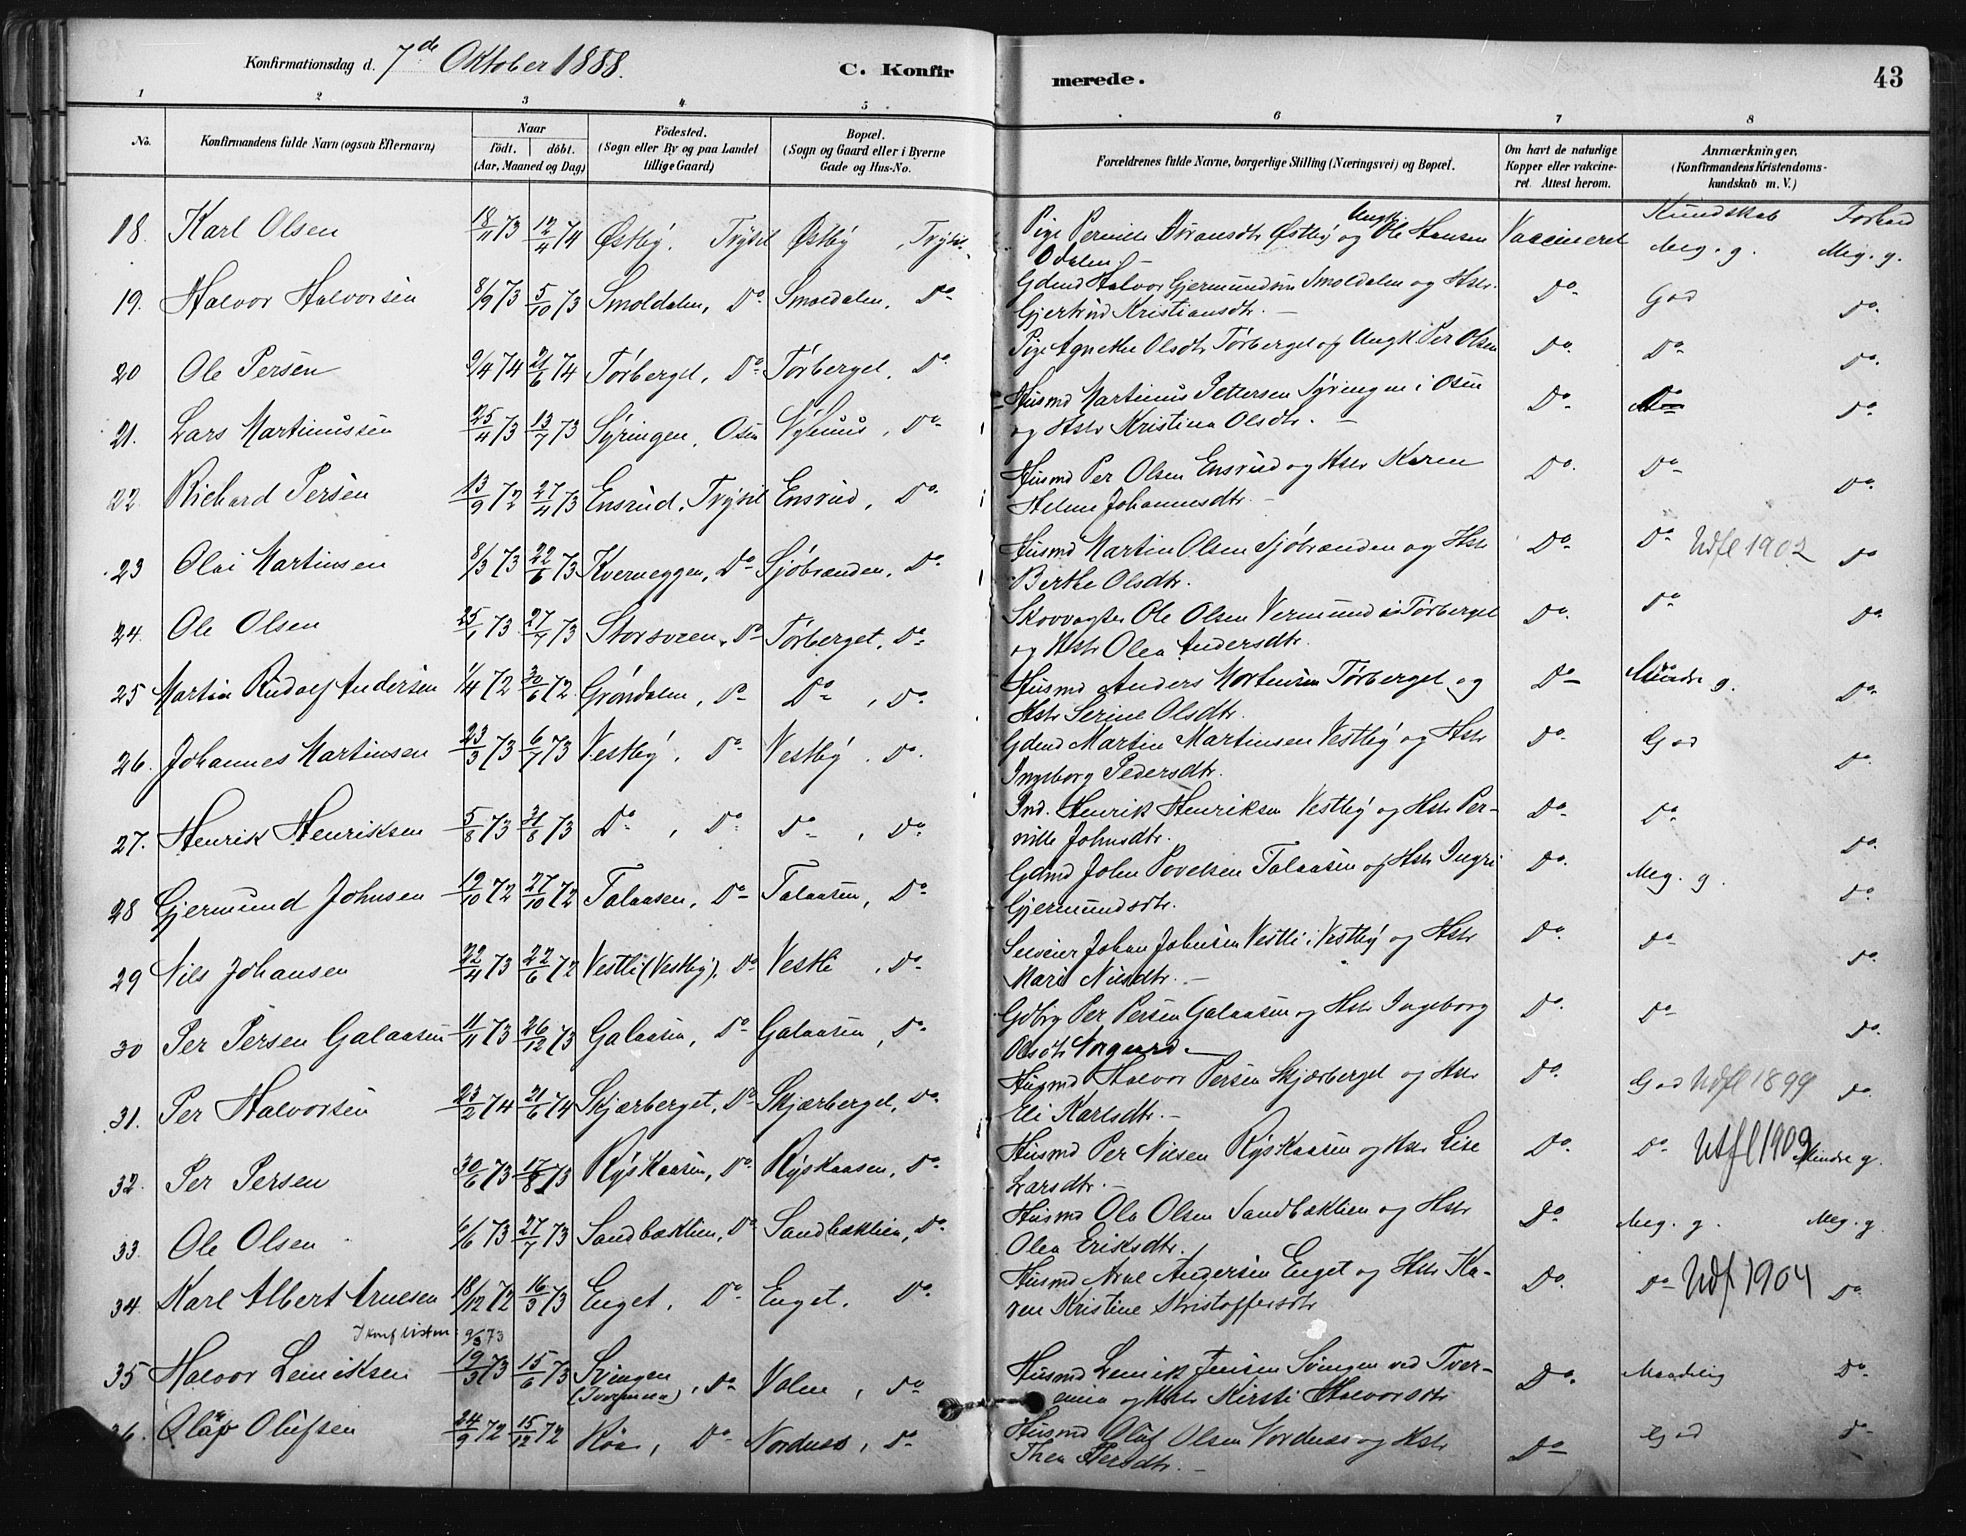 Konfirmationsdag d. 7de Oktober 1888. C. Konfirmerede. 43
1 2 3 4 5 6 7 8
No. Konfirmandens fulde Navn (ogsaa Efternavn) Naar födt. döbt. (Aar, Maaned og Dag) Födested. (Sogn eller By og paa Landet tillige Gaard) Bopæl. (Sogn og Gaard eller i Byerne Gade og Hus-No. Forældrenes fulde Navne, borgerlige Stilling (Næringsvei) og Bopæl. Om havt de naturlige Kopper eller vaccineret. Attest herom. Anmærkninger, (Konfirmandens Kristendomskundskab m. V.)
Kundskab Forhold
18. Karl Olsen 18/11 73 12/4 74 Østby, Trysil Østby, Trysil. Pige Pernille Østby og Ungk. Ole Hansen Odalen. — Vaccineret Meg. g. Meg. g.
19. Halvor Halvorsen 8/9 73 5/10 73 Smoldalen, Do Smoldalen, Do Gdmd Halvor Gjermundsen Smoldalen og Hstr. Gjertrud Kristiansdtr. — Do God Do
20 Ole Persen 9/4 74 21/6 74 Tørberget, Do Tørberget, Do Pige Agnethe Olsdtr Tørberget og Ungk. Per Olsen Do Do Do
21. Lars Martinussen 25/4 73 13/7 73 Syringen, Osen Nyhuus, Do Husmd Martinus Pettersen Syringen i Osen og Hstr Kristina Olsdtr. — Do Do Do
22 Richard Persen 13/9 72 27/4 73 Ensrud, Trysil Ensrud, Do Husmd Per Olsen Ensrud og Hstr Karen Helene Johannesdtr. — Do Do Do
23 Olai Martinsen 8/3 73 22/6 73 Kverneggen, Do Sjöbrænden, Do Husmd Martin Olsen Sjöbrænden og Hstr Berthe Olsdtr. Do Do Udfl 1902 Do
24. Ole Olsen 27/7 73 Storsveen, Do Tørberget, Do Skovvogter Ole Olsen Vermund i Tørberget og Hstr Olea Andersdtr. Do Do Do
25 Martin Rudolf Andersen 1/4 72 30/6 72 Gröndalen, Do Do, Do Husmd Anders Mortensen Tørberget og Hstr Serine Olsdtr. Do Mindre g. Do
26. Johannes Martinsen 23/3 73 6/7 73 Vestby, Do Vestby, Do Gdmd Martin Martinsen Vestby og Hstr Ingeborg Pedersdtr. Do God Do
27. Henrik Henriksen 5/8 73 31/8 73 Do, Do Do, Do Ind. Henrik Henriksen Vestby og Hstr Pernille Johnsdtr. Do Do Do
28 Gjermund Johnsen 19/10 72 27/10 72 Talaasen, Do Talaasen, Do Gdmd John Povelsen Talaasen og Hstr Ingri Gjermundsdtr. Do Meg. g. Do
29 Nils Johansen 22/4 73 22/6 72 Vestli (Vestby), Do Vestli, Do Selveier Johan Johnsen Vestli i Vestby og Hstr Mari Nilsdtr. — Do Do Do
30 Per Persen Galaasen 11/11 73 26/12 73 Galaasen, Do Galaasen, Do Gdbr Per Persen Galaasen og Hstr Ingeborg Olsdtr Norgaard. Do Do Do
31. Per Halvorsen 23/2 74 21/6 74 Skjærberget, Do Skjærberget, Do Husmd Halvor Persen Skjærberget og Hstr Eli Karlsdtr. — Do God Udfl 1899 Do
32. Per Persen 30/6 73 17/8 73 Ryskaasen, Do Ryskaasen, Do Husmd Per Nilsen Ryskaasen og Hstr Lise Larsdtr. — Do Do Utfl 1909 Mindre g.
33. Ole Olsen 6/6 73 27/7 73 Sandbæklien, Do Sandbæklien, Do Husmd Ole Olsen Sandbæklien og Hstr Olea Eriksdtr. Do Meg. g. Meg. g.
34. Karl Albert Arnesen 18/12 72 16/3 73 Enget, Do Enget, Do Husmd Arne Andersen Enget og Hstr Karen Kristine Kristoffersdtr Do Do Udf 1904 Do
I konf listen: 9/3 73
35 Halvor Lemiksen 19/3 73 15/6 73 Svingen, Do Volm, Do Husmd Lemik Jensen Svingen ved Tveræen og Hstr Kirsti Halvorsdtr Do Maadelig Do
36. Olaf Olufsen 24/9 72 15/12 72 Röa, Do Norduss, Do Husmd Oluf Olsen Norduss og Hstr Thea Persdtr. — Do God Do